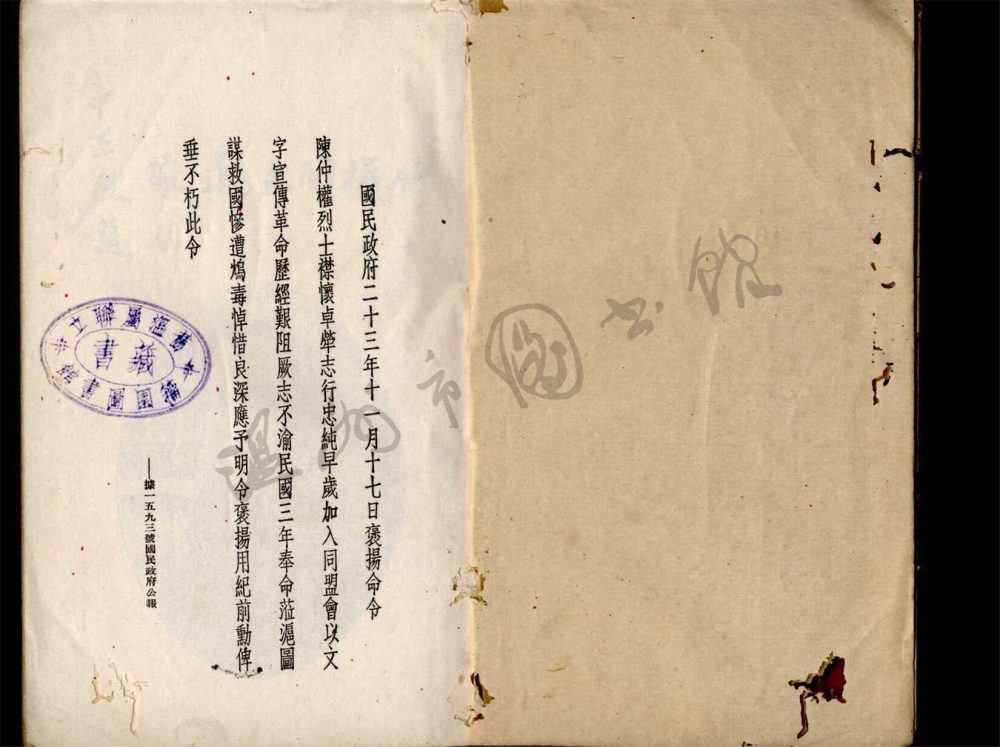 國民政府二十三年十一月十七日褒揚命令
陳仲權烈士襟懷卓犖志行忠純早歲加入同盟會以文
字宣傳革命歷經艱阻厥志不渝民國三年奉命蒞滬圖
謀救國慘遭鴆毒悼惜良深應予明令褒揚用紀前勳俾
垂不朽此令
——據一五九三號國民政府公報
藏書
温州市圖書館